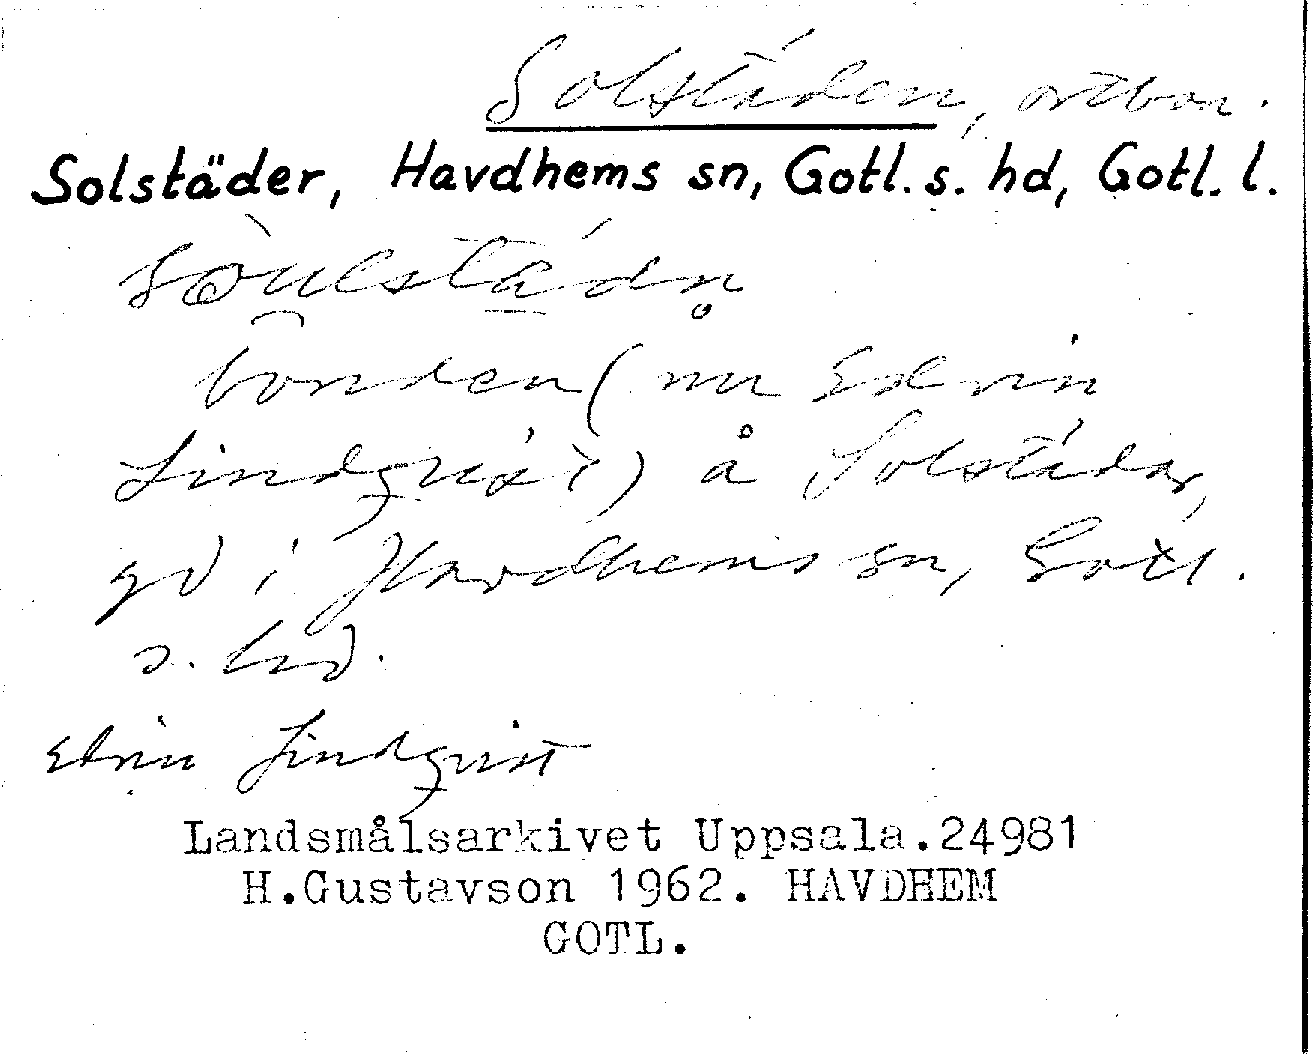 Solstäden, ortbon.
Solstäder, Havdhems sn, Gotl. s. hd, Gotl. l.
bonden (nu Edvin
Lindqvist) å Solstäder,
gd i Havdhems sn, Gotl.
s. hd.
Edvin Lindqvist
Landsmålsarkivet Uppsala.24981
H.Gustavson 1962. HAVDHEM
GOTL.